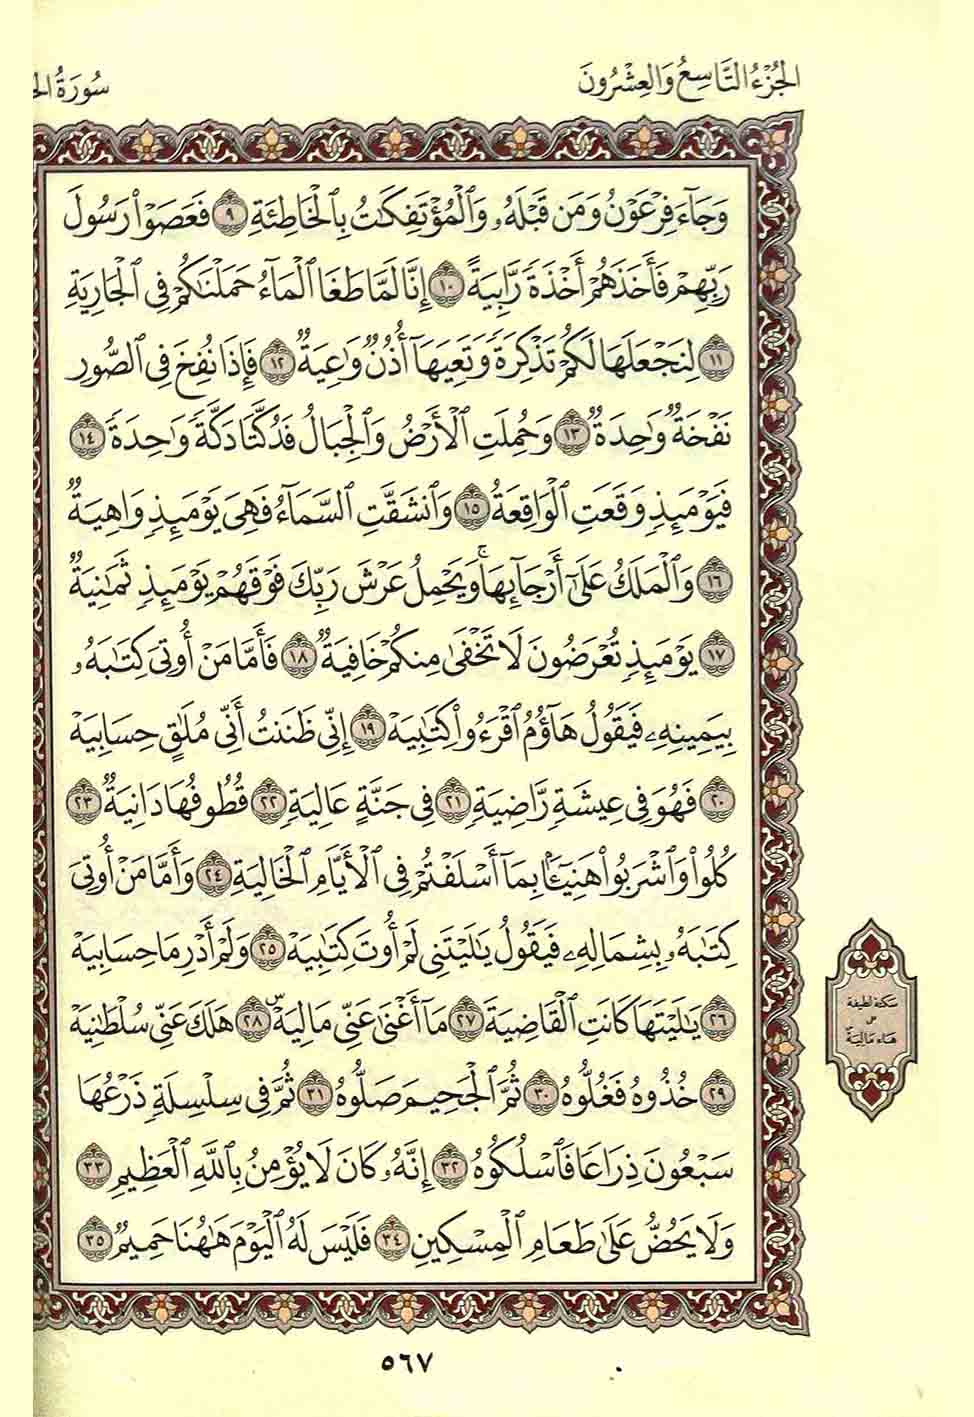 الجُزْءُ التَّاسِعُ وَالعِشْرُونَ
سُورَةُ
وَجَآءَ فِرْعَوْنُ وَمَن قَبْلَهُۥ وَٱلْمُؤْتَفِكَٰتُ بِٱلْخَاطِئَةِ ٩ فَعَصَوْا۟ رَسُولَ
رَبِّهِمْ فَأَخَذَهُمْ أَخْذَةً رَّابِيَةً ١٠ إِنَّا لَمَّا طَغَا ٱلْمَآءُ حَمَلْنَٰكُمْ فِى ٱلْجَارِيَةِ
١١ لِنَجْعَلَهَا لَكُمْ تَذْكِرَةً وَتَعِيَهَآ أُذُنٌ وَٰعِيَةٌ ١٢ فَإِذَا نُفِخَ فِى ٱلصُّورِ
نَفْخَةٌ وَٰحِدَةٌ ١٣ وَحُمِلَتِ ٱلْأَرْضُ وَٱلْجِبَالُ فَدُكَّتَا دَكَّةً وَٰحِدَةً ١٤
فَيَوْمَئِذٍ وَقَعَتِ ٱلْوَاقِعَةُ ١٥ وَٱنشَقَّتِ ٱلسَّمَآءُ فَهِىَ يَوْمَئِذٍ وَاهِيَةٌ
١٦ وَٱلْمَلَكُ عَلَىٰٓ أَرْجَآئِهَا ۚ وَيَحْمِلُ عَرْشَ رَبِّكَ فَوْقَهُمْ يَوْمَئِذٍ ثَمَٰنِيَةٌ
١٧ يَوْمَئِذٍ تُعْرَضُونَ لَا تَخْفَىٰ مِنكُمْ خَافِيَةٌ ١٨ فَأَمَّا مَنْ أُوتِىَ كِتَٰبَهُۥ
بِيَمِينِهِۦ فَيَقُولُ هَآؤُمُ ٱقْرَءُوا۟ كِتَٰبِيَهْ ١٩ إِنِّى ظَنَنتُ أَنِّى مُلَٰقٍ حِسَابِيَهْ
٢٠ فَهُوَ فِى عِيشَةٍ رَّاضِيَةٍ ٢١ فِى جَنَّةٍ عَالِيَةٍ ٢٢ قُطُوفُهَا دَانِيَةٌ ٢٣
كُلُوا۟ وَٱشْرَبُوا۟ هَنِيٓـًٔۢا بِمَآ أَسْلَفْتُمْ فِى ٱلْأَيَّامِ ٱلْخَالِيَةِ ٢٤ وَأَمَّا مَنْ أُوتِىَ
كِتَٰبَهُۥ بِشِمَالِهِۦ فَيَقُولُ يَٰلَيْتَنِى لَمْ أُوتَ كِتَٰبِيَهْ ٢٥ وَلَمْ أَدْرِ مَا حِسَابِيَهْ
٢٦ يَٰلَيْتَهَا كَانَتِ ٱلْقَاضِيَةَ ٢٧ مَآ أَغْنَىٰ عَنِّى مَالِيَهْ ۜ ٢٨ هَلَكَ عَنِّى سُلْطَٰنِيَهْ
٢٩ خُذُوهُ فَغُلُّوهُ ٣٠ ثُمَّ ٱلْجَحِيمَ صَلُّوهُ ٣١ ثُمَّ فِى سِلْسِلَةٍ ذَرْعُهَا
سَبْعُونَ ذِرَاعًا فَٱسْلُكُوهُ ٣٢ إِنَّهُۥ كَانَ لَا يُؤْمِنُ بِٱللَّهِ ٱلْعَظِيمِ ٣٣
وَلَا يَحُضُّ عَلَىٰ طَعَامِ ٱلْمِسْكِينِ ٣٤ فَلَيْسَ لَهُ ٱلْيَوْمَ هَٰهُنَا حَمِيمٌ ٣٥
سكتة لطيفة
على
هاء مَالِيَهْ
٥٦٧